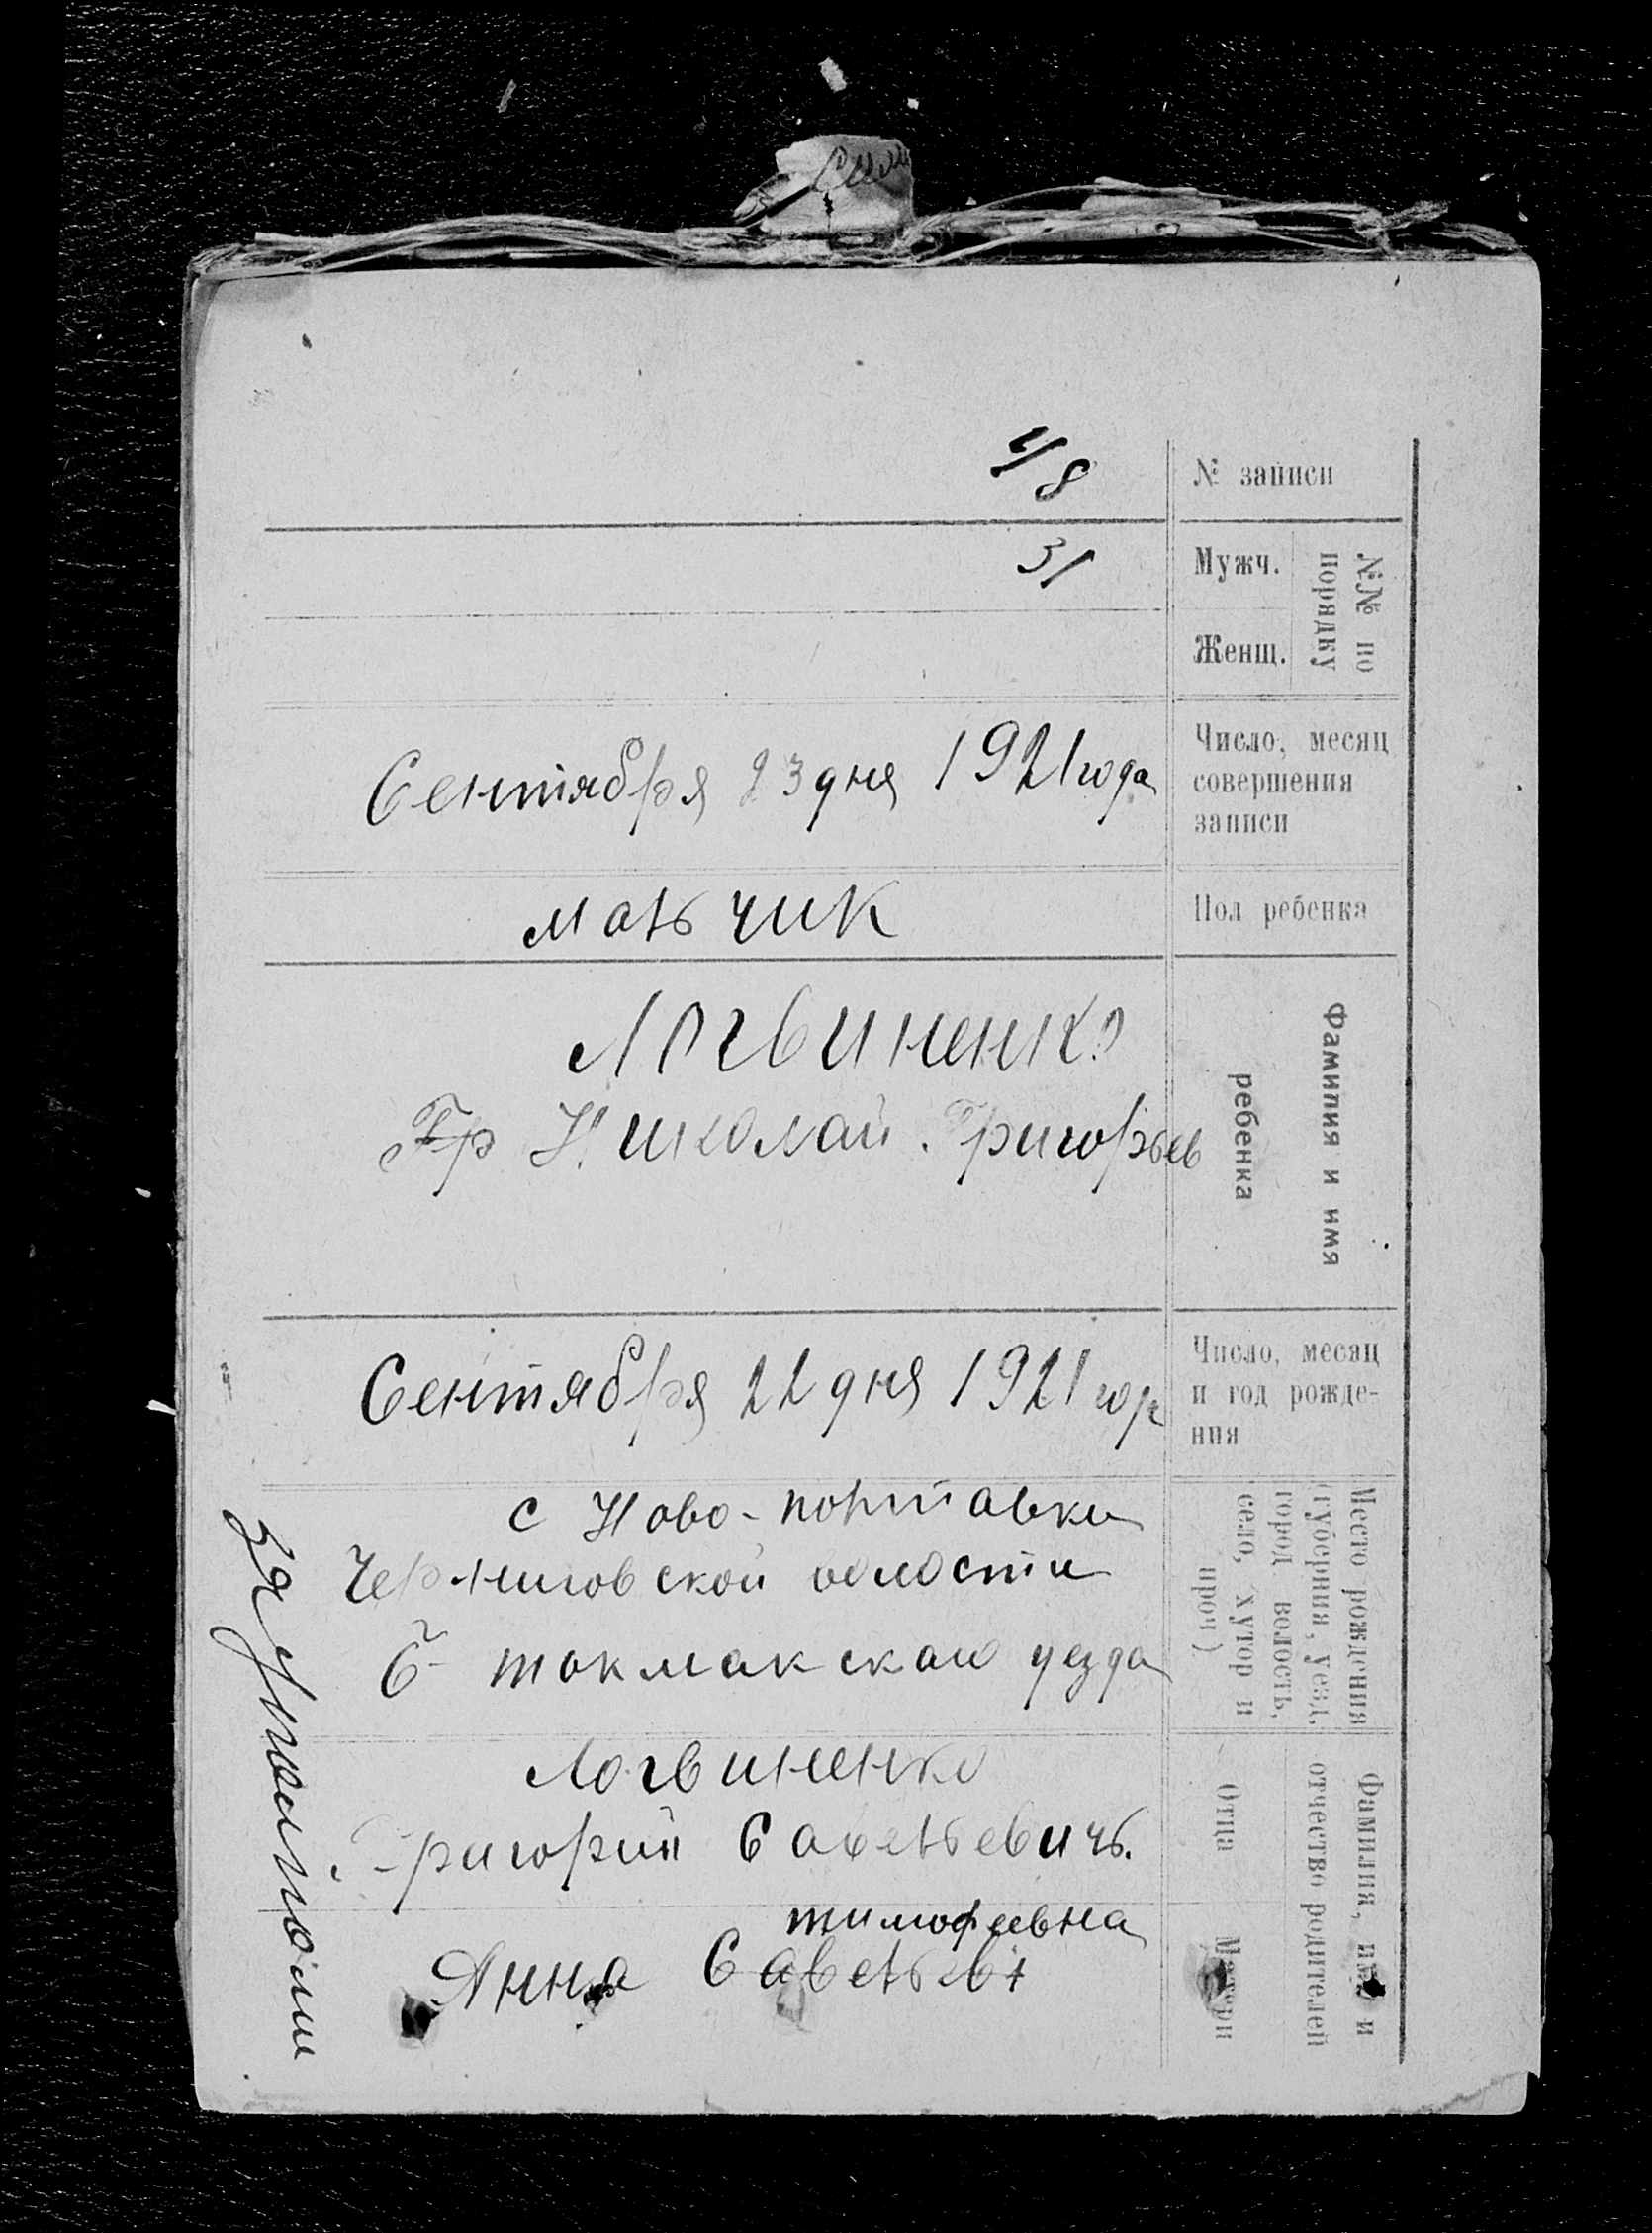 № записи
48
№№ по порядку
Мужч.
31
Женщ.
Число, месяц
совершения
записи
Сентября 23 дня 1921 года
Пол ребенка
мальчик
Фамилия и имя
ребенка
Логвиненко
Гр Николай Григорьев
Число, месяц
и год рожде-
ния
Сентября 22 дня 1921 года
Место рождения
(губерния, уезд,
город волость,
село, хутор и
проч)
с Ново-полтавки
Черниговской волости
Б- токмакскаго уезда
Фамилия, имя и
отчество родителей
Отца
Логвиненко
Григорий Савельевичъ.
Матери
тимофеевна
Анна Савельев